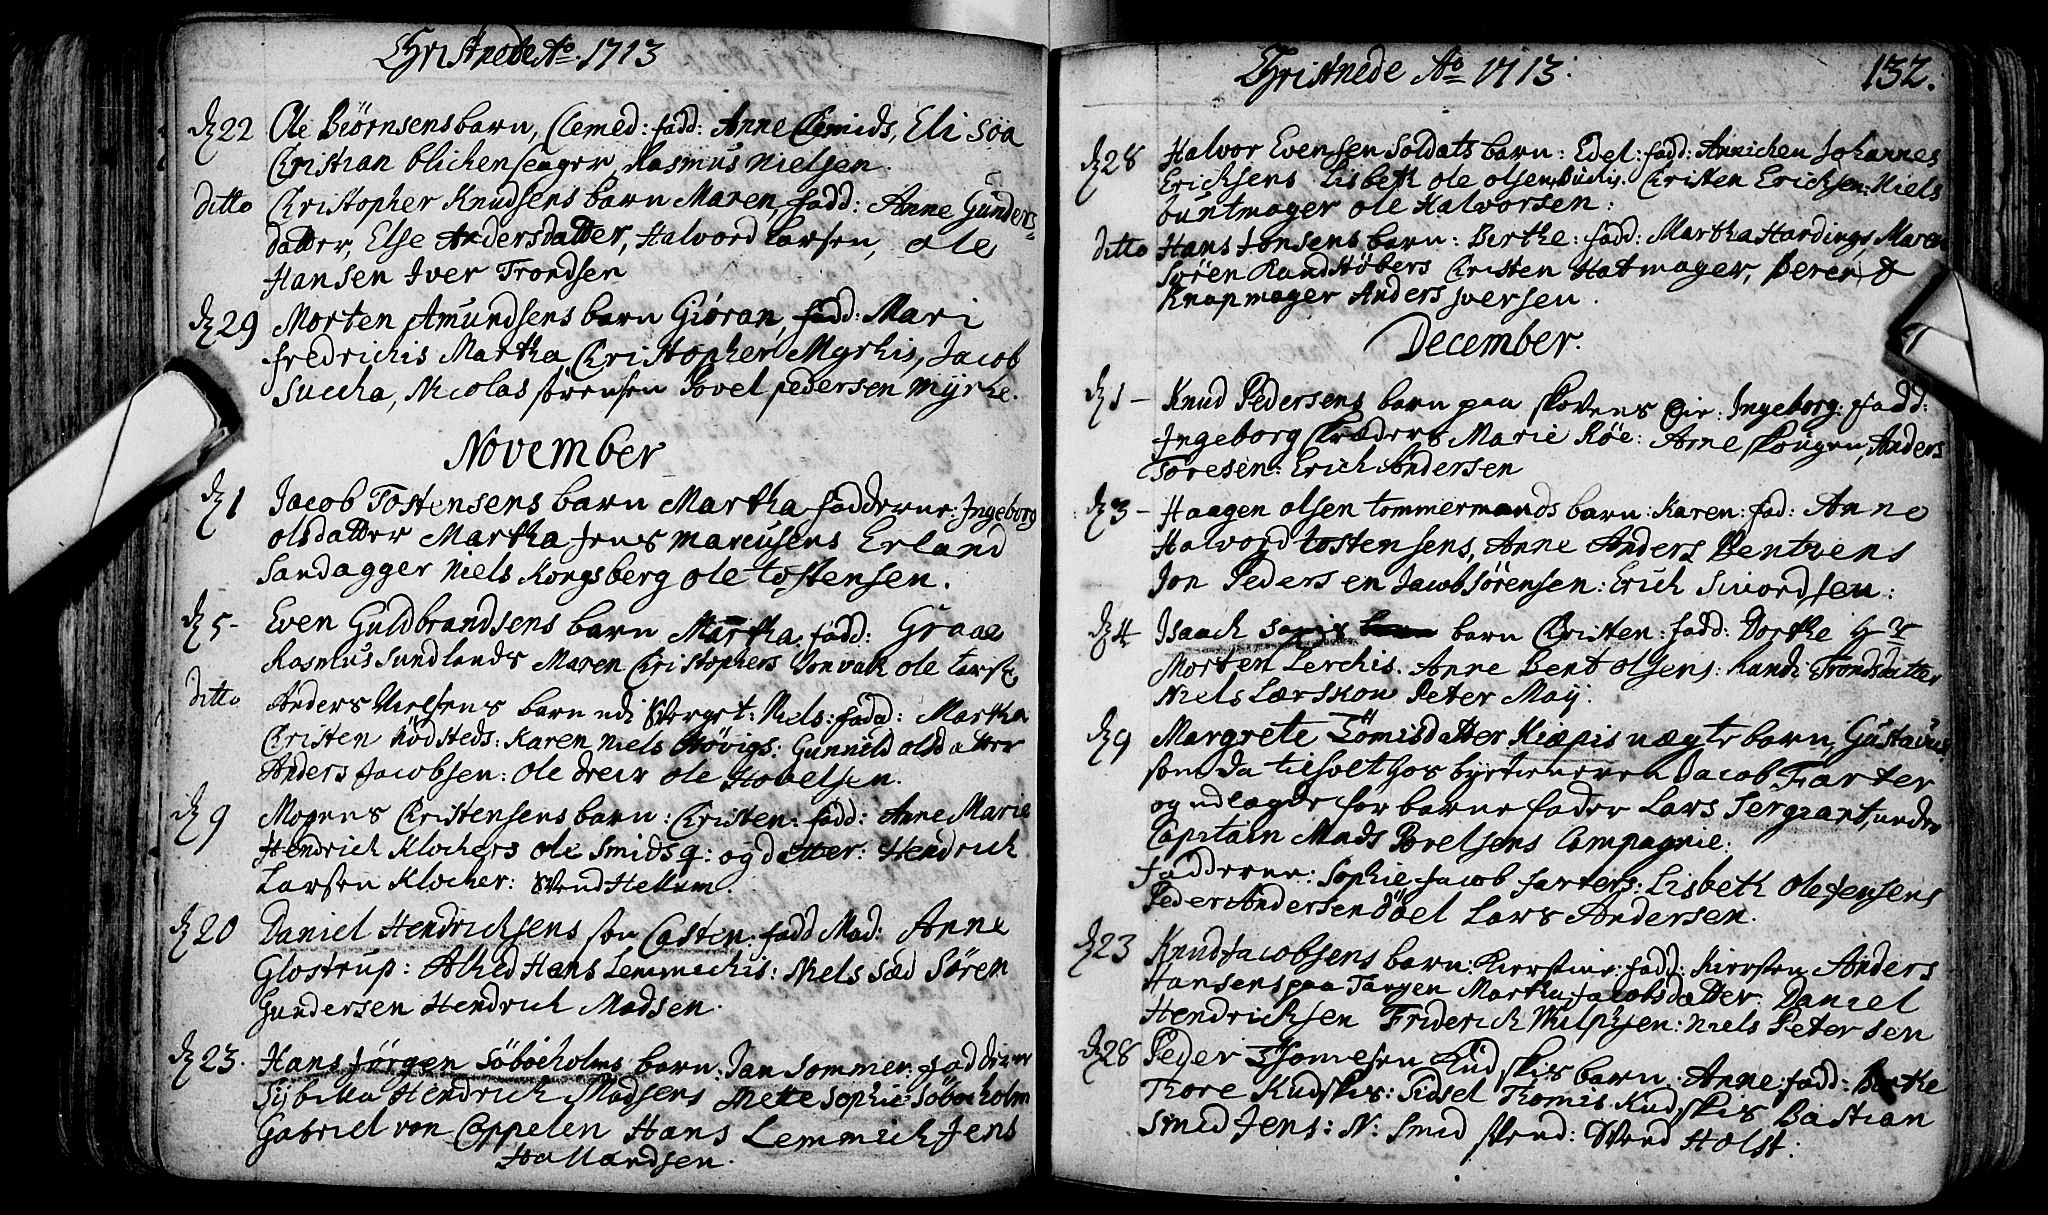 Christnede Ao. 1713
d. 22 Ole Biørnsens barn, Clemed: fadd: Anne Clemids, Eli Söa
Christian blickenslager, Rasmus Nielsen.
ditto Christopher Knudsens barn Maren, fadd: Anne Gunders-
datter, Else Andersdatter, Halvord Larsen, Ole
Hansen Iver Trondsen
d. 29 Morten Amundsens barn Giöran, fadd: Mari
fredrichis Martha Christopher Myrhis, Jacob
Succha, Nicolas sørensen Povel pedersen Myrhe.
November
d. 1 Jacob Tostensens barn Martha fadderne: Ingeborg
olsdatter Martha Jens Marcusens Erland
Sandagger Niels Kongsberg ole tostensen.
d. 5 - Even Guldbrandsens barn Martha, fadd: Graae
Rasmus Sundlands Maren Christophers ole
ditto Anders Nielsens barn udi Werget: Niels: fadd: Martha
Christen Rödsteds: Karen Niels Hövigs: Gunnild olsdatter
Anders Jacobsen: ole dreir ole Hovelsen.
d. 9 Mogens Christensens barn: Christen: fadd: Anne Marie
Hendrich Klochers ole Smids q: og datter: Hendrich
Larsen Klocher: Svend Hellum.
d. 20 Daniel Hendrichsens søn Casten: fadd Mad: Anne
Glostrup: Alhed Hans Lemmichis: Niels Sæd Sören
Gundersen Hendrich Madsen.
d. 23. Hans Jørgen Söboeholms barn: Jan Sommer: fadderne
Sybilla Hendrich Madsens Mette Sophie Söboeholm
Gabriel von Cappelen Hans Lemmich Jens
Hallvardsen.
Christnede Ao 1713. 132.
d. 28 Halvor Evensen Soldats barn: Edel: fadd: Annichen Johannes
Ericksens Lisbeth ole olsen Christen Ericksen: Niels
buntmager ole Halvorsen:
ditto Hans Jonsens barn: Birthe: fadd: Martha Hardings, Maren
Sören Kandstöbers Christen Hatmager, Berent
Knapmager Anders Iversen.
December.
d. 1 - Knud Pedersens barn paa skovens Eie: Ingeborg: fadd:
Ingeborg Skræders Marie Röe: Anne skougen, Anders
Toresen: Erich Andersen
d. 3 - Haagen olsen tommermands barn: Karen: fad: Anne
Halvord tostensens, Anne Anders Bentzens
Jon Pedersen Jacob Sörensen: Erich Sivordsen:
d. 4 Isaach barn Christen: fadd: Dorthe Hr
Morten Lerchis. Anne Bent olsens: Randi Trondsdatter
Niels Lærskou Peter May.
d. 9 Margrete Tömisdatter Kiepis uægte barn, Gustavus
som da tilholt hos byetieneren Jacob Farter
og udlagde for barne fader Lars Sergeant, under
Capitain Mads Povelsens Compagnie:
Fadderne: Sophie Jacob farters: Lisbeth Ole Jensens
Peder Andersen Döel Lars Andersen.
d. 23 Knud Jacobsens barn: Kierstine: fadd: Kiersten Anders
Hansens paa Tangen Martha Jacobsdatter. Daniel
Hendrichsen Friderich Niels Petersen
d. 28 Peder Thomesen Kudskis barn: Anne: fadd: Berthe
Thore Kudskis: Sidsel Thomis Kudskis Bastian
Smid Jens: N: Smid svend: Svend Holst: